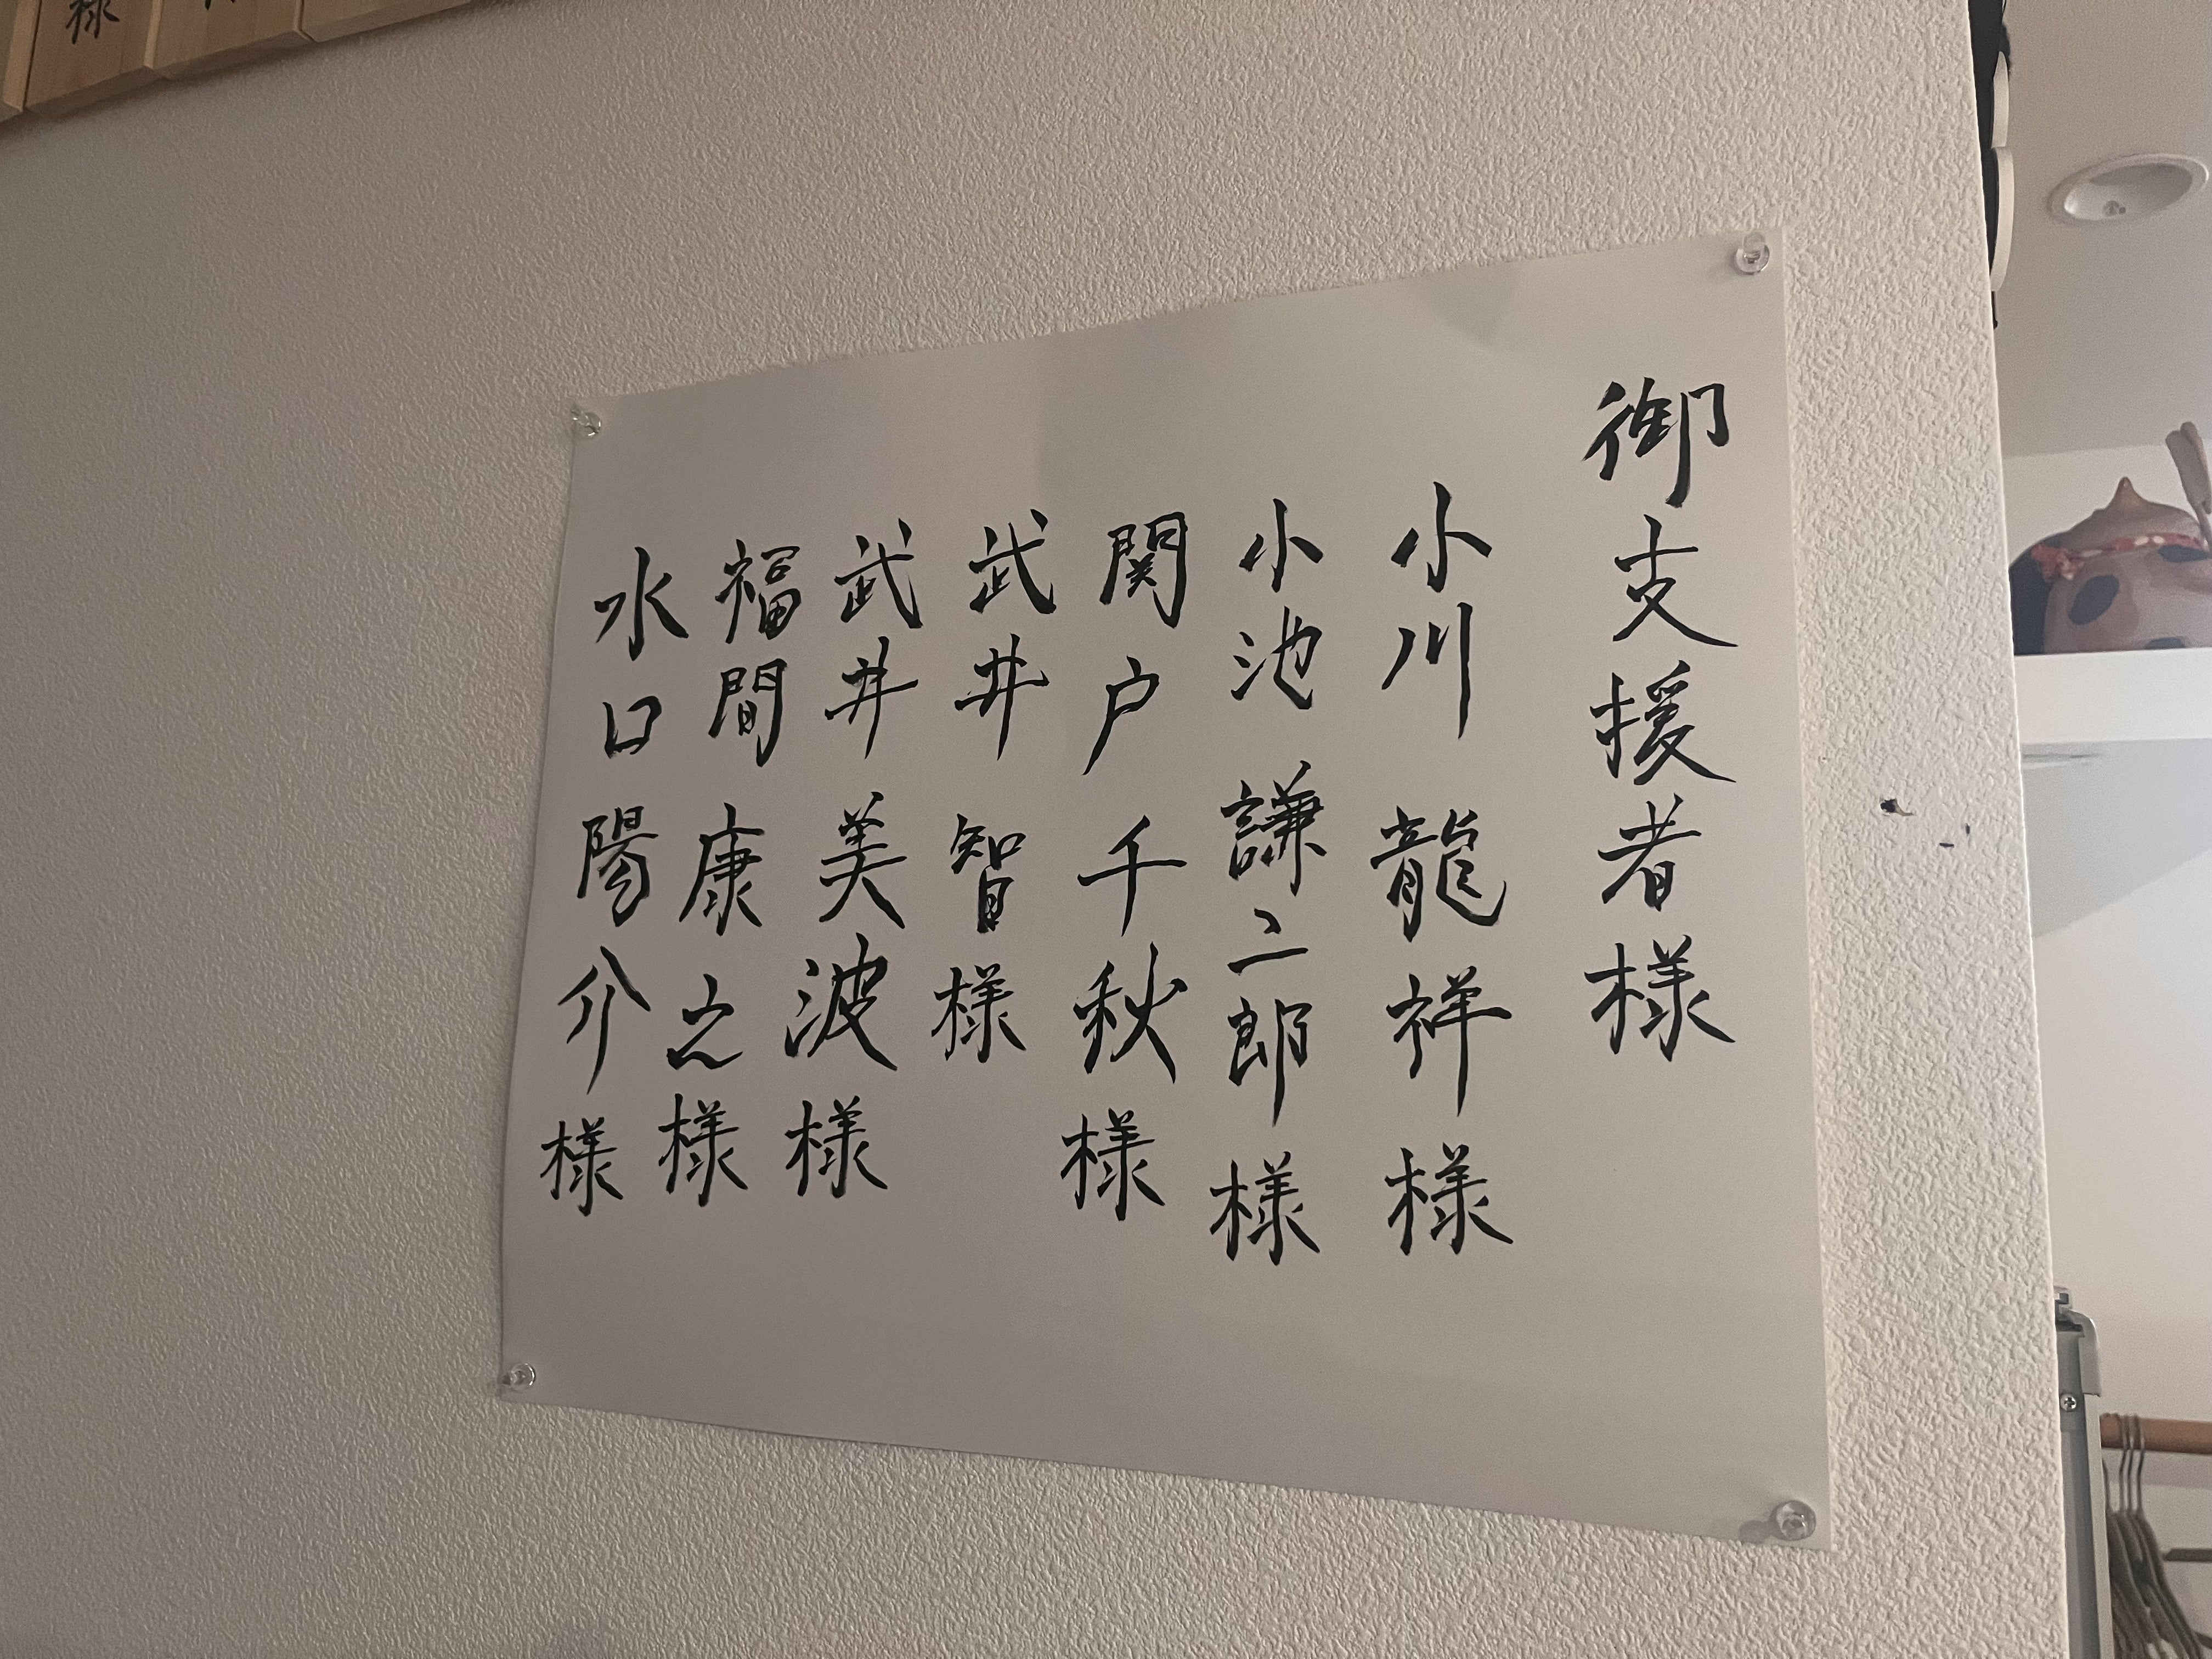 御支援者様
小川 龍祥様
小池 謙二郎様
関戸 千秋様
武井 智様
武井 美波様
福間 康之様
水口 陽介様
様